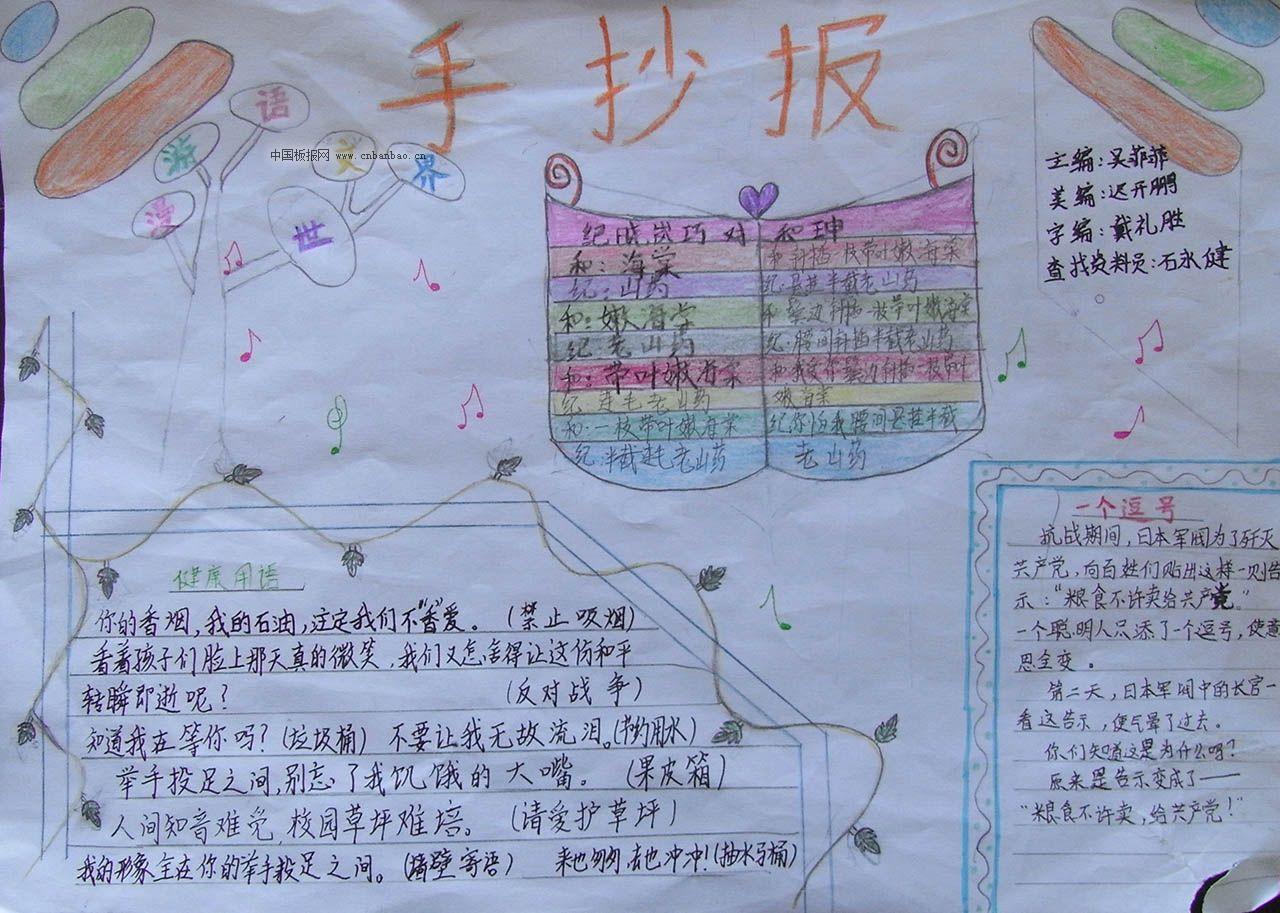 手抄报
漫游语文世界
中国板报网 www.cnbanbao.cn
主编:吴菲菲
美编:迟开鹏
字编:戴礼胜
查找资料员:石永健
纪 巧对和珅
和:海棠
纪:山药
和:嫩海棠
纪:老山药
和:带叶嫩海棠
纪:连毛老山药
和:一枝带叶嫩海棠
纪:半截连毛老山药
和:斜插一枝带叶嫩海棠
纪:悬挂半截老山药
和:鬓边斜插一枝带叶嫩海棠
纪:腰间斜插半截老山药
和:我爱你鬓边斜插一枝带叶
嫩海棠
纪:你怕我腰间悬挂半截
老山药
健康用语
你的香烟,我的石油,注定我们不“香”爱。(禁止吸烟)
看着孩子们脸上那天真的微笑,我们又怎舍得让这份和平
转瞬即逝呢?(反对战争)
知道我在等你吗?(垃圾桶) 不要让我无故流泪。(节约用水)
举手投足之间,别忘了我饥饿的大嘴。(果皮箱)
人间知音难觅,校园草坪难培。(请爱护草坪)
我的形象全在你的举手投足之间。(墙壁寄语) 来也匆匆,去也冲冲!(抽水马桶)
一个逗号
抗战期间,日本军阀为了歼灭
共产党,向百姓们贴出这样一则告
示:“粮食不许卖给共产党。”
一个聪明人只添了一个逗号,使意
思全变。
第二天,日本军阀中的长官一
看这告示,便气晕了过去。
你们知道这是为什么吗?
原来是告示变成了——
“粮食不许卖,给共产党!”